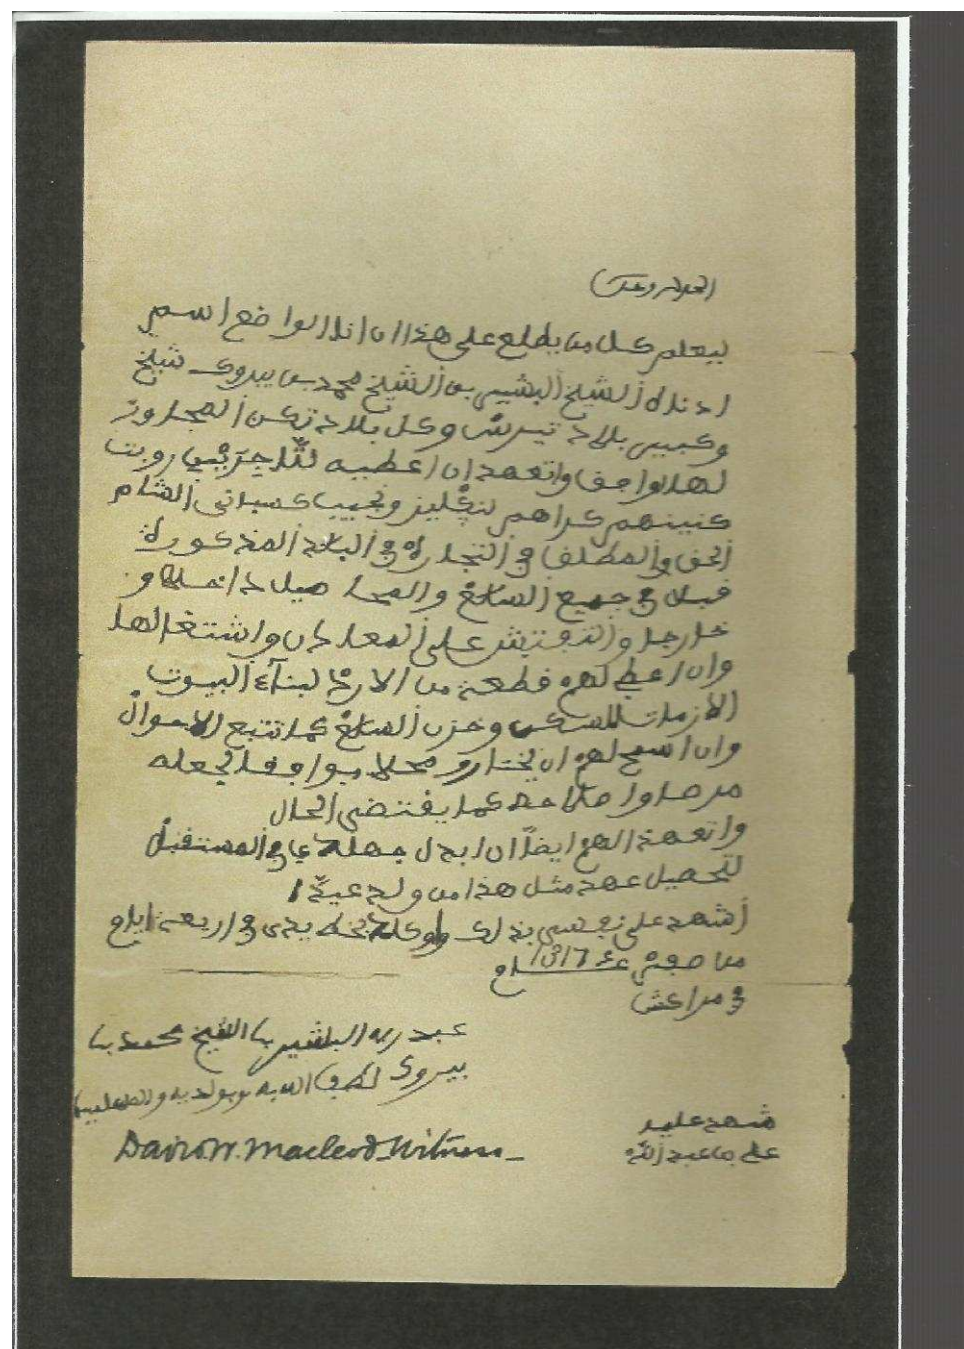 الحمد لله وحده
ليعلم كل من يطلع على هذا ان انا الواضع اسمي
ادناه الشيخ البشير بن الشيخ محمد بن بيروك شيخ
وكبير بلاد تيرس وكل بلاد تكن المجاوز
لهلوا حق واتعهد ان اعطيه للتاجرين روبت
كراهم لنڭليز ونجيب كسباني الشام
الحق والمطلق في التجارة في البلاد المذكورة
قبلى في جميع السلع والمحاصيل داخلها و
خارجا والتفتيش على المعادن واشتغالها
وان اعطي لهم قطعة من الارض لبناء البيوت
الازمات للسكن وخزن السلع كما تتبع الاموال
وان اسمح لهم ان يختارو محلا موافقا لجعله
مرصا وا كما يقتضى الحال
واتعهد الهم ايضا ان ابدل جهدي في المستقبل
لتحصيل عهد مثل هذا من ولد عيدة
أشهد على نفسي بذلك بخط يدى في اربعة ايام
من صفر عام 1316
في مراكش
عبد ربه البشير بن الشيخ محمد بن
بيروك لطف الله به وبولديه
شهد عليه
علي بن عبد الله
David W. Macleod Witness